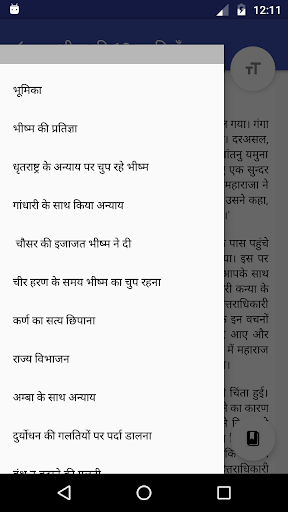 12:11
भूमिका
भीष्म की प्रतिज्ञा
धृतराष्ट्र के अन्याय पर चुप रहे भीष्म
गांधारी के साथ किया अन्याय
चौसर की इजाजत भीष्म ने दी
चीर हरण के समय भीष्म का चुप रहना
कर्ण का सत्य छिपाना
राज्य विभाजन
अम्बा के साथ अन्याय
दुर्योधन की गलतियों पर पर्दा डालना
गया। गंगा
दरअसल,
शांतनु यमुना
एक सुन्दर
महाराजा ने
उसने कहा,
पास पहुंचे
या। इस पर
आपके साथ
री कन्या के
त्तराधिकारी
इन वचनों
आए और
में महाराज
चिंता हुई।
ने का कारण
त्तराधिकारी